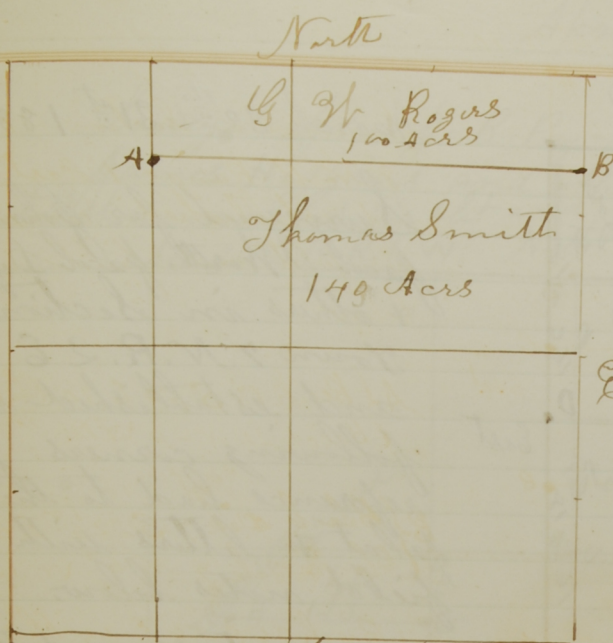 North
G W Rogers
100 Acrs
A B
Thomas Smith
149 Acrs
E